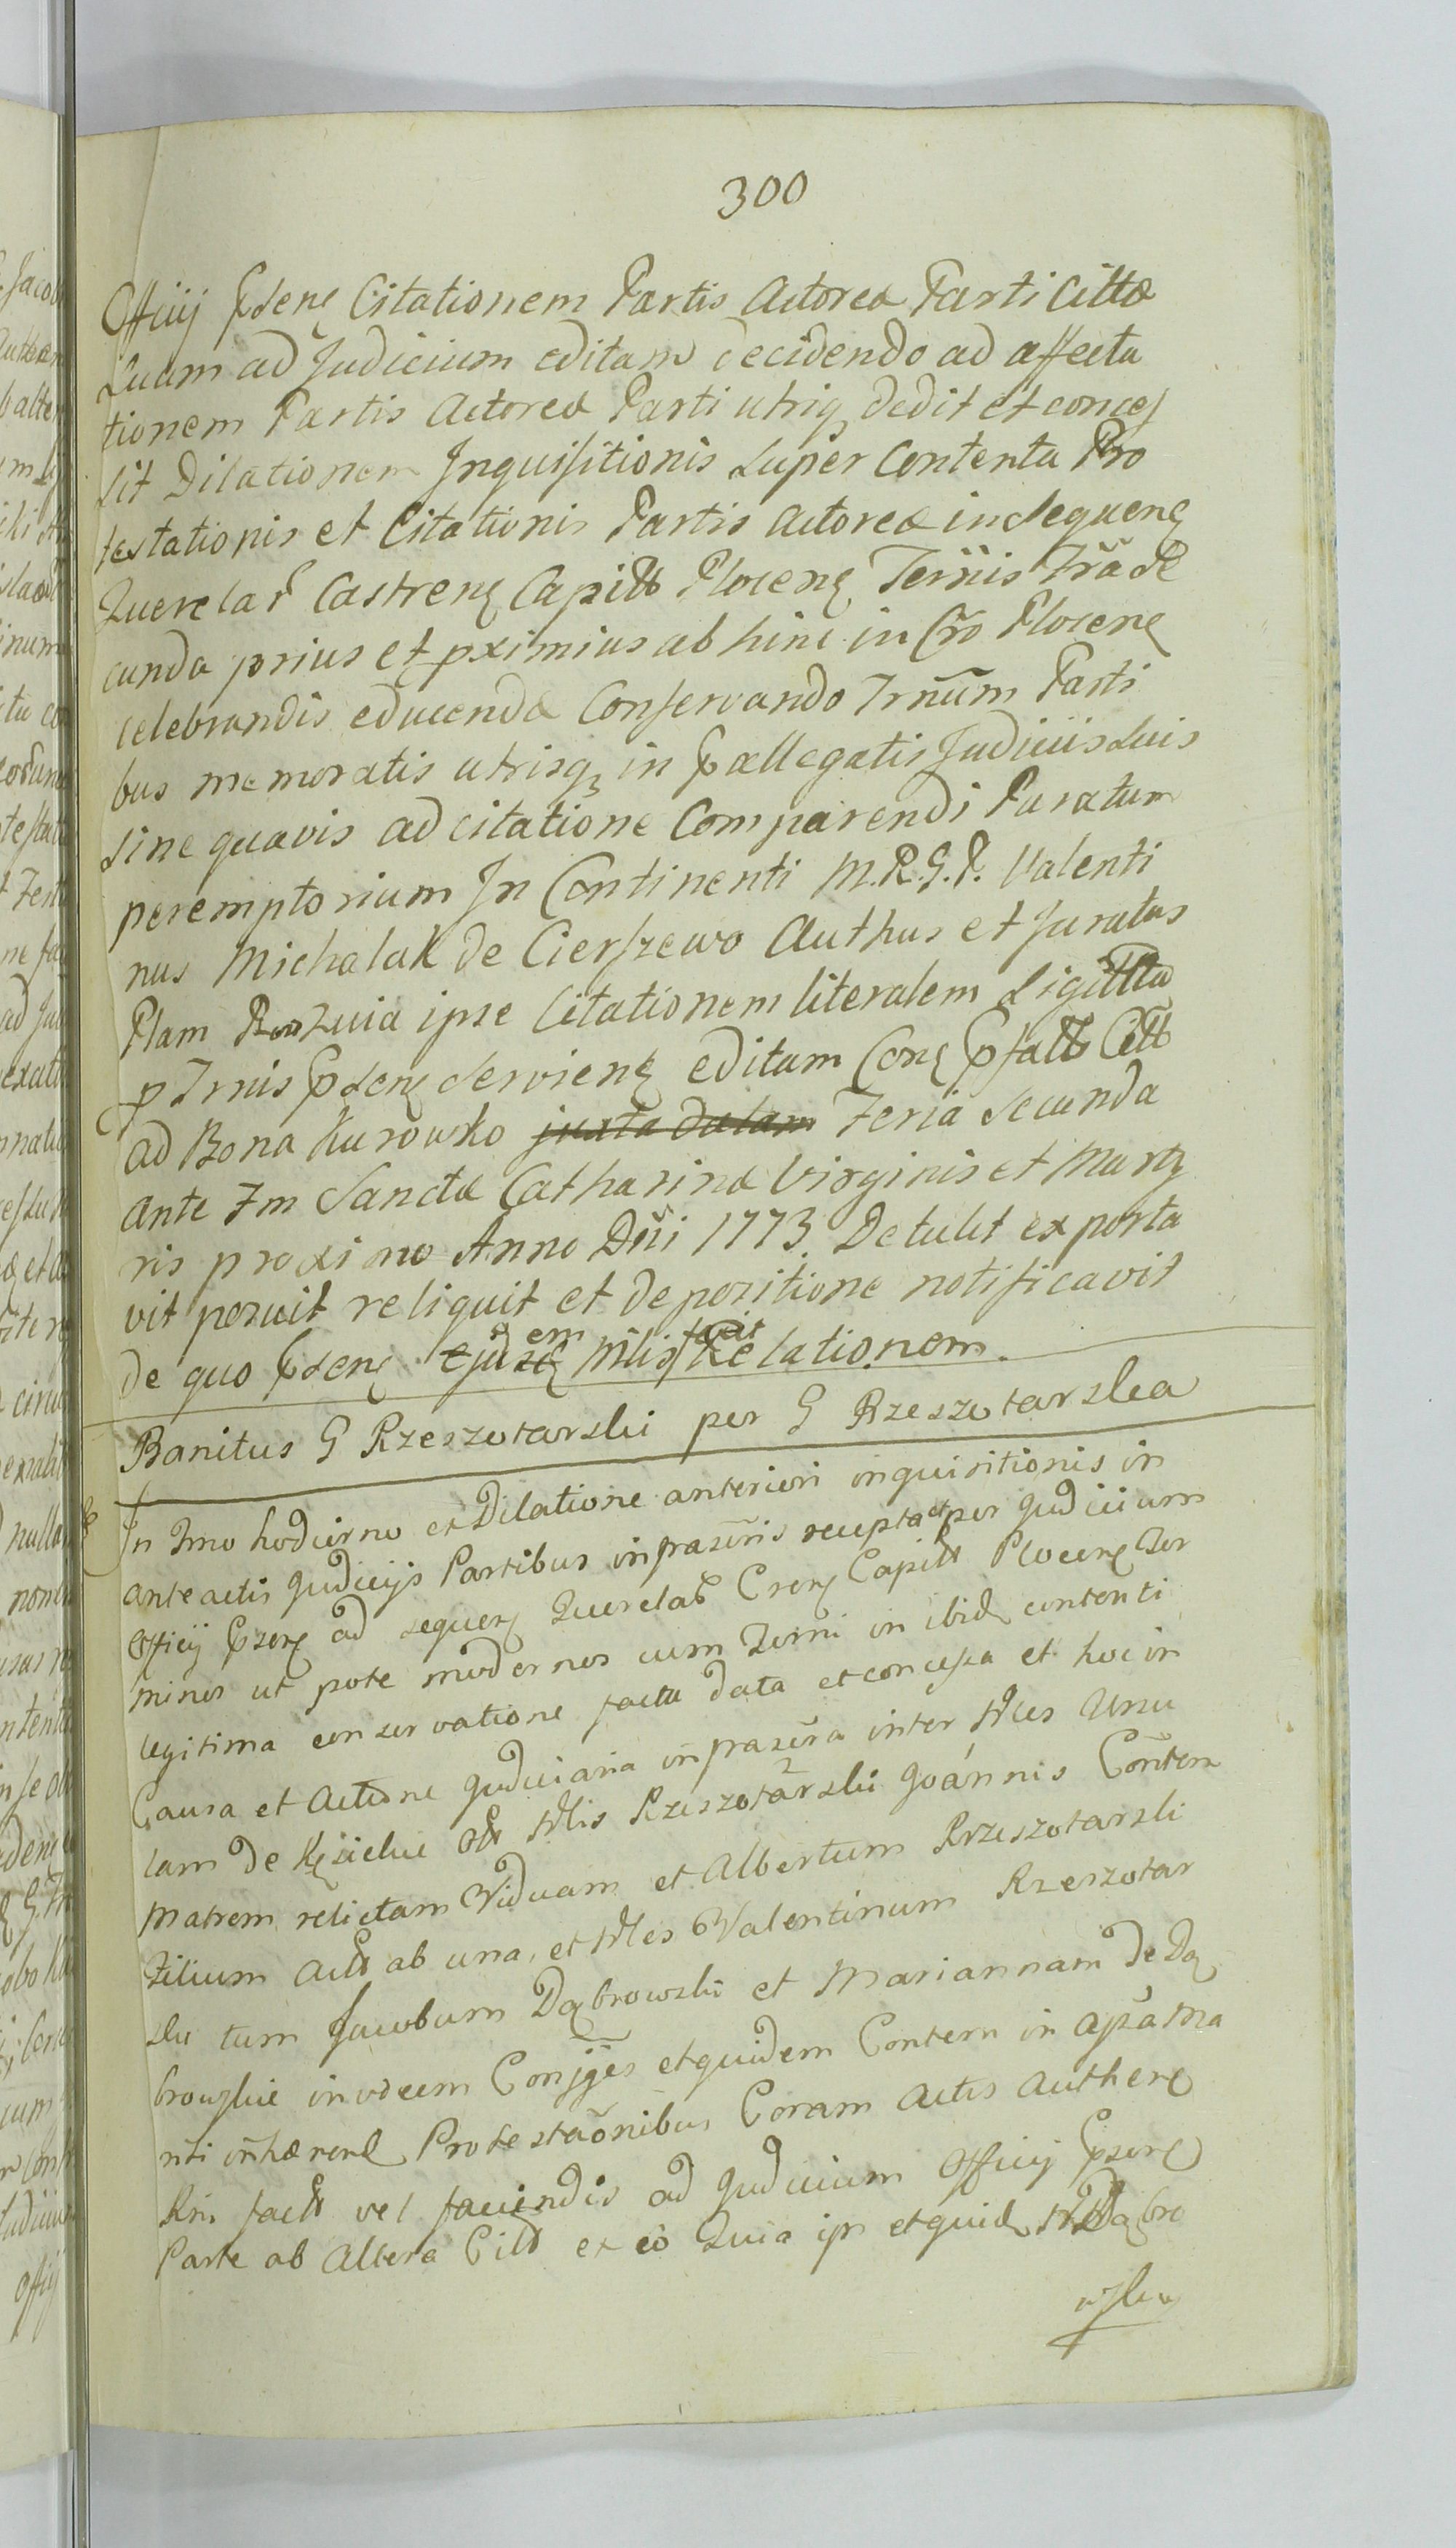 300
Officij Psens Citationem Partis Actoreæ Parti Cittæ
suam ad Judicium editam decidendo ad affecta
tionem Partis Actoreæ Parti utriq dedit et conces
sit Dilationem Inquisitionis super Contenta Pro
testationis et Citationis Partis Actoreæ in sequens
Querelar Castrens Capitt Plocens Termis
cunda prius et pximius ab hinc in Cro Plocens
celebrandis educenda Conservando Trnum Parti
bus memoratis utrisq in Pallegatis Judiciis suis
sine quavis ad citatione Comparendi Paratum
peremptorium In Continenti M.R.G.P. Valenti
nus Michalak de Cierszewo Authus et Juratus
Plam quia ipse Citationem literalem Sigittta
p Trnis Psens serviens editam Cons Citt
ad Bona Kurowko juxta datam Feria secunda
ante Fm Sanctæ Catharinæ Virginis et Marty
ris proximo Anno Dni 1773. Detulit exporta
vit posuit reliquit et de positione notificavit
de quo Psens ejusdem Mlis fecit Relationem.
Banitus G Rzeszotarski per G Rzeszotarska
In Tmo hodierno ex Dilatione anteriori inquisitionis in
anteactis Judicijs Partibus in præsenris recepta et per Judicium
Officij Psens ad sequens Querelab Crens Capitt Plocens Ter
minos ut pote modernos cum Termi in ibid contenti
legitima conservatione facta data et concessa et hoc in
Causa et Actione Judiciaria in præsena inter Mles Unu
lam de Olt Mlis Rzeszotarski Joannis Contem
Matrem relictam Viduam et Albertum Rzeszotarski
Filium Actt ab una, et Mles Valentinum Rzeszotar
ski tum Jacobum Dąbrowski et Mariannam de Dą
browskie invicem Conjges et quidem Contem in
nti inhærens Protestaonibus Coram Actis Authens
Rni factt vel faciendis ad Judicium Officij Psens
Parte ab Altera Citt ex eo Quia ipi et quid Dąbro
wskij